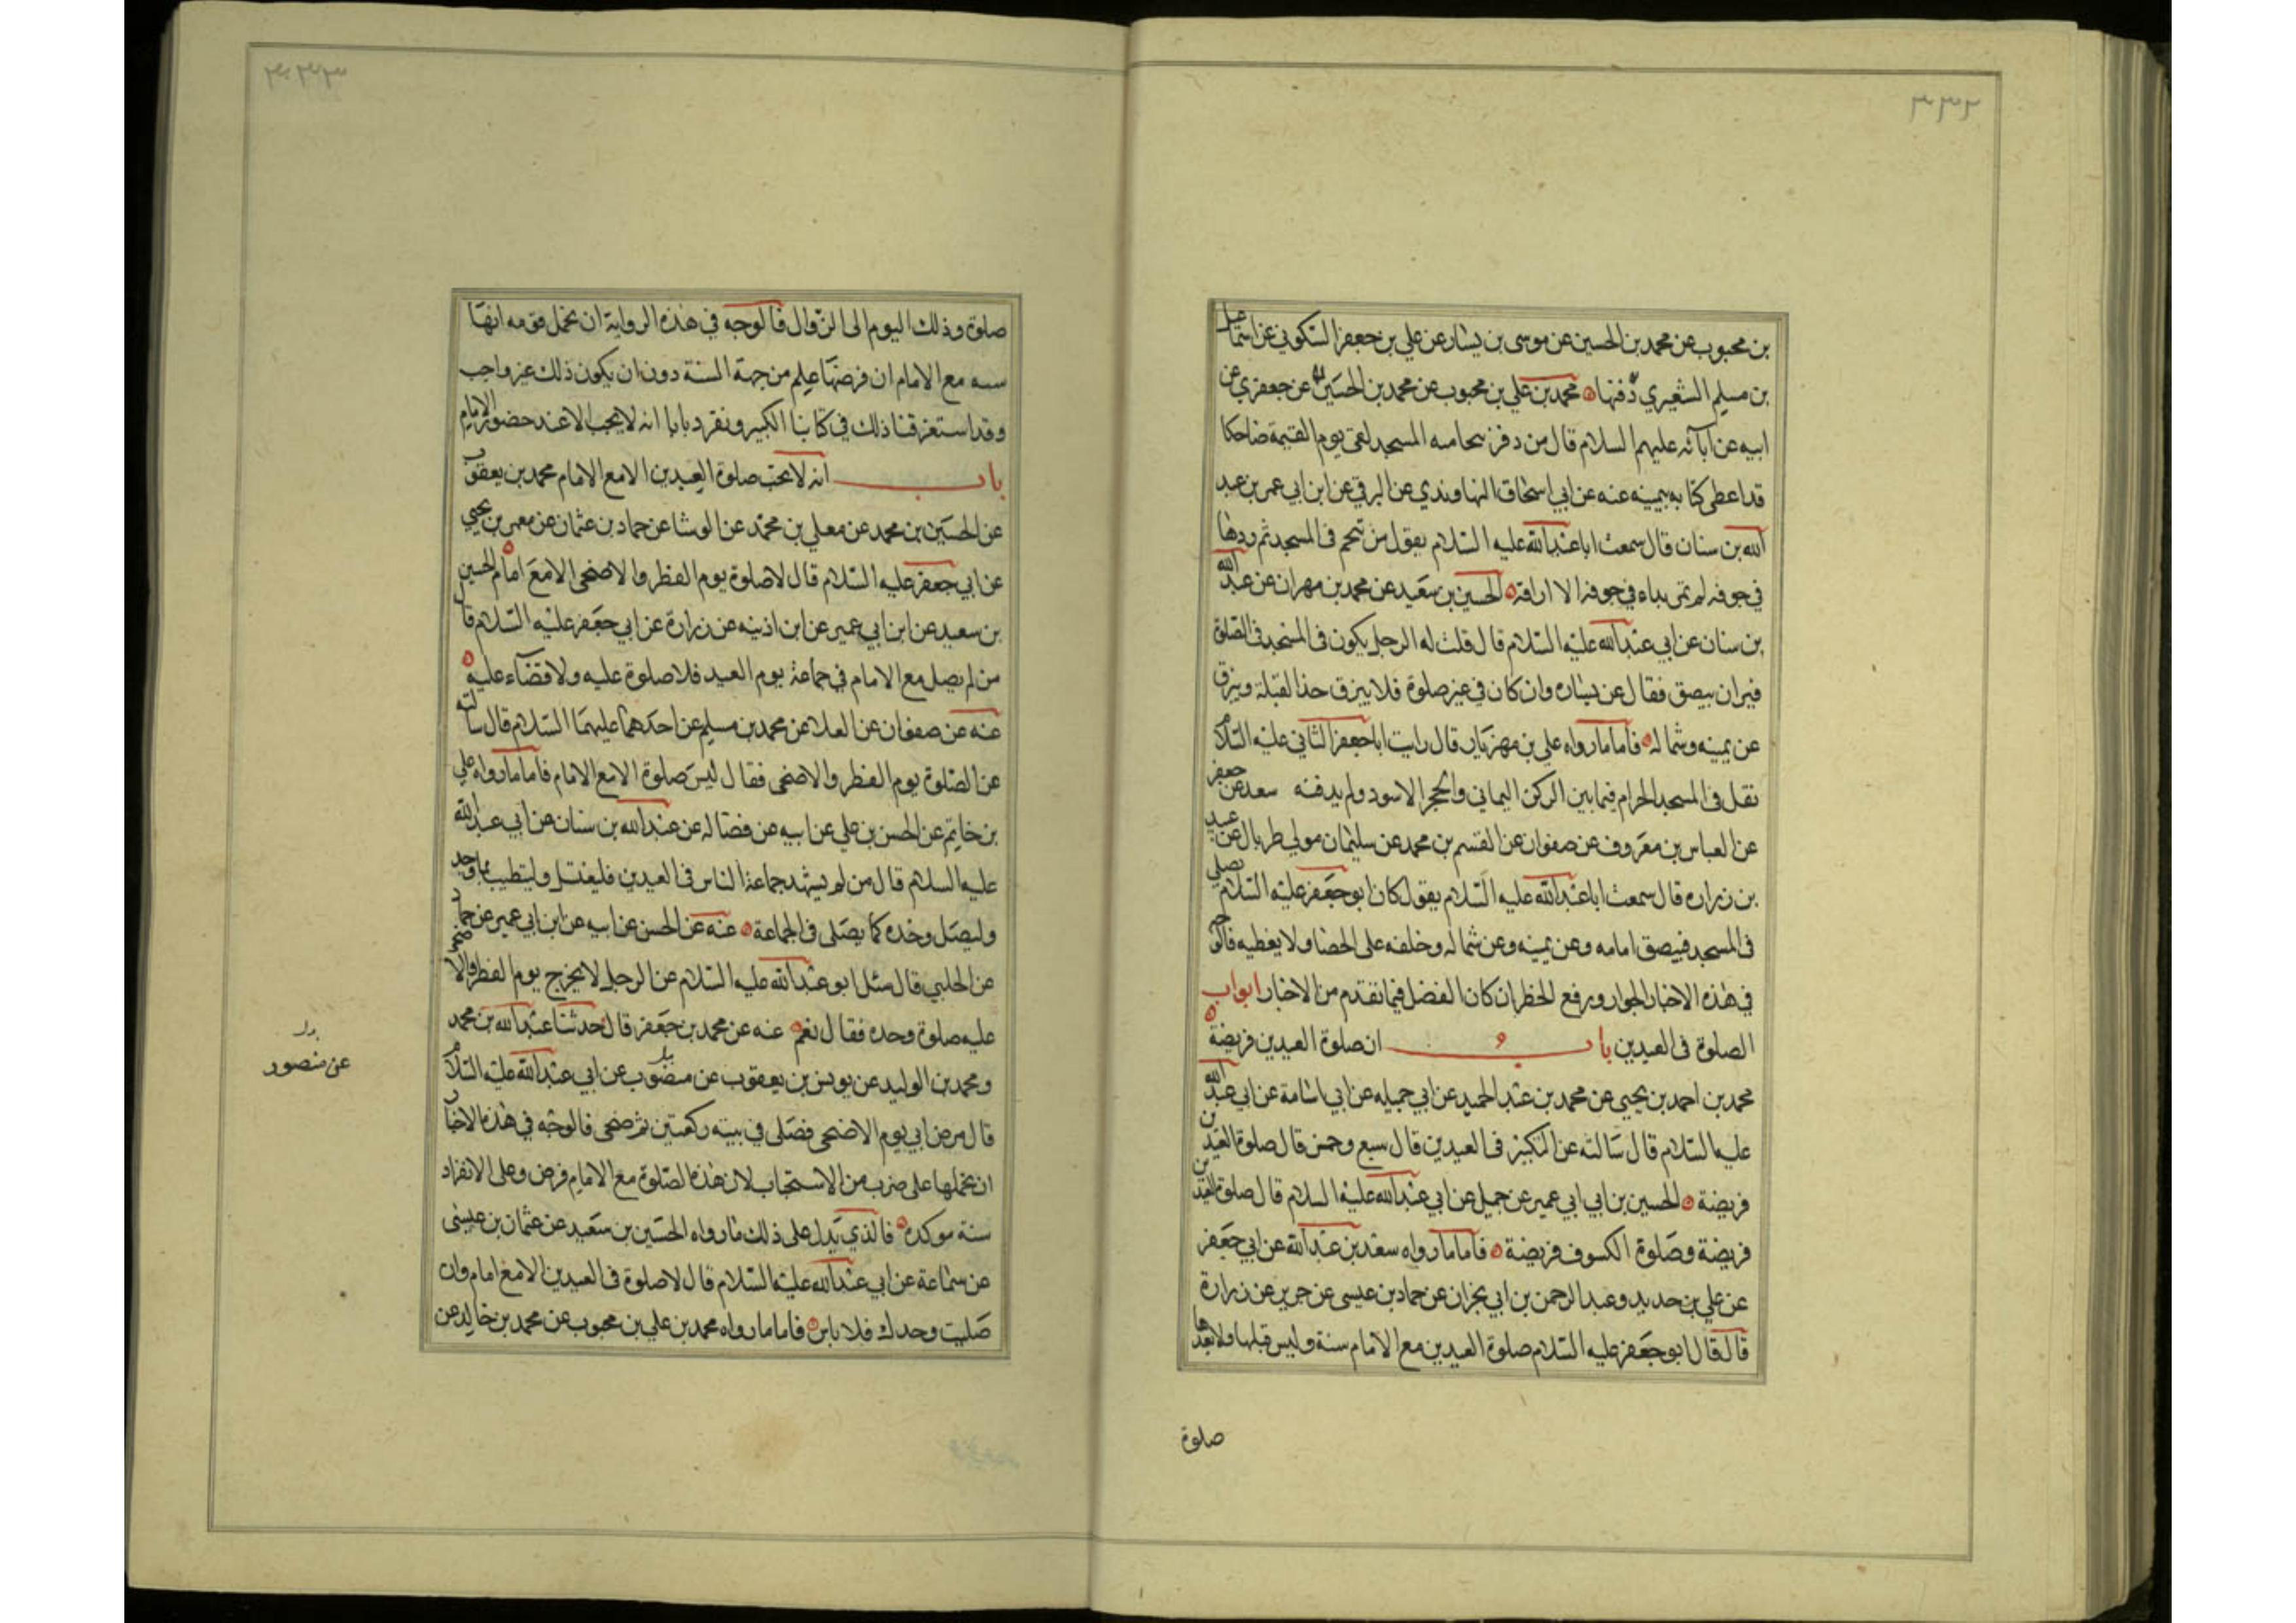 ٣٣٢
بن محبوب عن محمد بن الحسين عن موسى بن يسار عن علي بن جعفر السكوني عن اسماعيل
بن مسلم الشعيري دفنها محمد بن علي بن محبوب عن محمد بن الحسين عن جعفر عن
ابيه عن آبائه عليهم السلام قال من المسجد لقي يوم القيمة ضاحكا
قد اعطى كتابه بيمينه عنه عن ابي اسحاق النهاوندي عن البرقي عن ابن ابي عمر بن عبد
الله بن سنان قال سمعت ابا عبد الله عليه السلام يقول من تنخم في المسجد ثم ردها
في جوفه لم تمر بداء في جوفه الا الحسين بن سعيد عن محمد بن مهران عن عبد الله
بن سنان عن ابي عبد الله عليه السلام قال قلت له الرجل يكون في المسجد في الصلوة
فيران يبصق فقال عن يساره وان كان في غير صلوة فلا يبزق حذا القبلة ويبزق
عن يمينه وشماله فاما ما رواه علي بن مهزيار قال رايت ابا جعفر الثاني عليه السلام
تفل في المسجد الحرام فيما بين الركن اليماني والحجر الاسود ولم يدفنه سعد عن جعفر
عن العباس بن معروف عن صفوان عن القسم بن محمد عن سليمان مولى طربال عن عبيد
بن زراره قال سمعت ابا عبد الله عليه السلام يقول كان ابو جعفر عليه السلام يصلي
في المسجد فيبصق امامه وعن يمينه وعن شماله وخلفه على الحصا ولا يغطيه فالوجه
في هذه الاخبار الجواز ورفع الحظر ان كان الفضل فيما تقدم من الاخبار ابواب
الصلوة في العيدين باب ان صلوة العيدين فريضة
محمد بن احمد بن يحيى عن محمد بن عبد الحميد عن ابي جميله عن ابي اسامة عن ابي عبد الله
عليه السلام قال سالته عن التكبير في العيدين قال سبع وخمس قال صلوة العيدين
فريضة الحسين بن ابي ابي عمير عن جميل عن ابي عبد الله عليه السلام قال صلوة العيدين
فريضة وصلوة الكسوف فريضة فاما ما رواه سعد بن عبد الله عن ابي جعفر
عن علي بن حديد وعبد الرحمن بن ابي نجران عن حماد بن عيسى عن حريز عن زرارة
قال قال ابو جعفر عليه السلام صلوة العيدين مع الامام سنة وليس قبلها ولا بعدها
صلوة
٣٣٣
صلوة وذلك اليوم الى الزوال فالوجه في هذه الرواية ان نحمل قوله انها
سنه مع الامام ان فرضها علم من جهة السنة دون ان يكون ذلك غير واجب
وقد استغرقنا ذلك في كتابنا الكبير ونفرد بابا انه لا يجب الا عند حضور الامام
باب انه لا يجب صلوة العيدين الا مع الامام محمد بن يعقوب
عن الحسين بن محمد عن معلي بن محمد عن الوشا عن حماد بن عثمان عن معمر بن يحيي
عن ابي جعفر عليه السلام قال لا صلوة يوم الفطر والاضحى الا مع امام الحسين
بن سعيد عن ابن ابي عمير عن ابن اذينه عن زرارة عن ابي جعفر عليه السلام قال
من لم يصل مع الامام في جماعة يوم العيد فلا صلوة عليه ولا قضاء عليه
عنه عن صفوان عن العلا عن محمد بن مسلم عن احدهما عليهما السلام قال سالته
عن الصلوة يوم الفطر والاضحى فقال ليس صلوة الا مع الامام فاما ما رواه علي
بن حاتم عن الحسن بن علي عن ابيه عن فضاله عن عبد الله بن سنان عن ابي عبد الله
عليه السلام قال من لم يشهد جماعة الناس في العيدين فليغتسل وليتطيب بما وجد
وليصل وحده كما يصلى في الجماعة عنه عن الحسن عن ابيه عن ابن ابي عمير عن حماد
عن الحلبي قال سئل ابو عبد الله عليه السلام عن الرجل لا يخرج يوم الفطر والاضحى
عليه صلوة وحده فقال نعم عنه عن محمد بن جعفر قال حدثنا عبد الله بن محمد
ومحمد بن الوليد عن يونس بن يعقوب عن عن ابي عبد الله عليه السلام
قال مرض ابي يوم الاضحى فصلى في بيته ركعتين ثم ضحى فالوجه في هذه الاخبار
ان نحملها على ضرب من الاستحباب لان هذه الصلوة مع الامام فرض وعلى الانفراد
سنة موكدة فالذي يدل على ذلك ما رواه الحسين بن سعيد عن عثمان بن عيسى
عن سماعة عن ابي عبد الله عليه السلام قال لا صلوة في العيدين الا مع امام وان
صليت وحدك فلا باس فاما ما رواه محمد بن علي بن محبوب عن محمد بن خالد عن
بدل
عن منصور